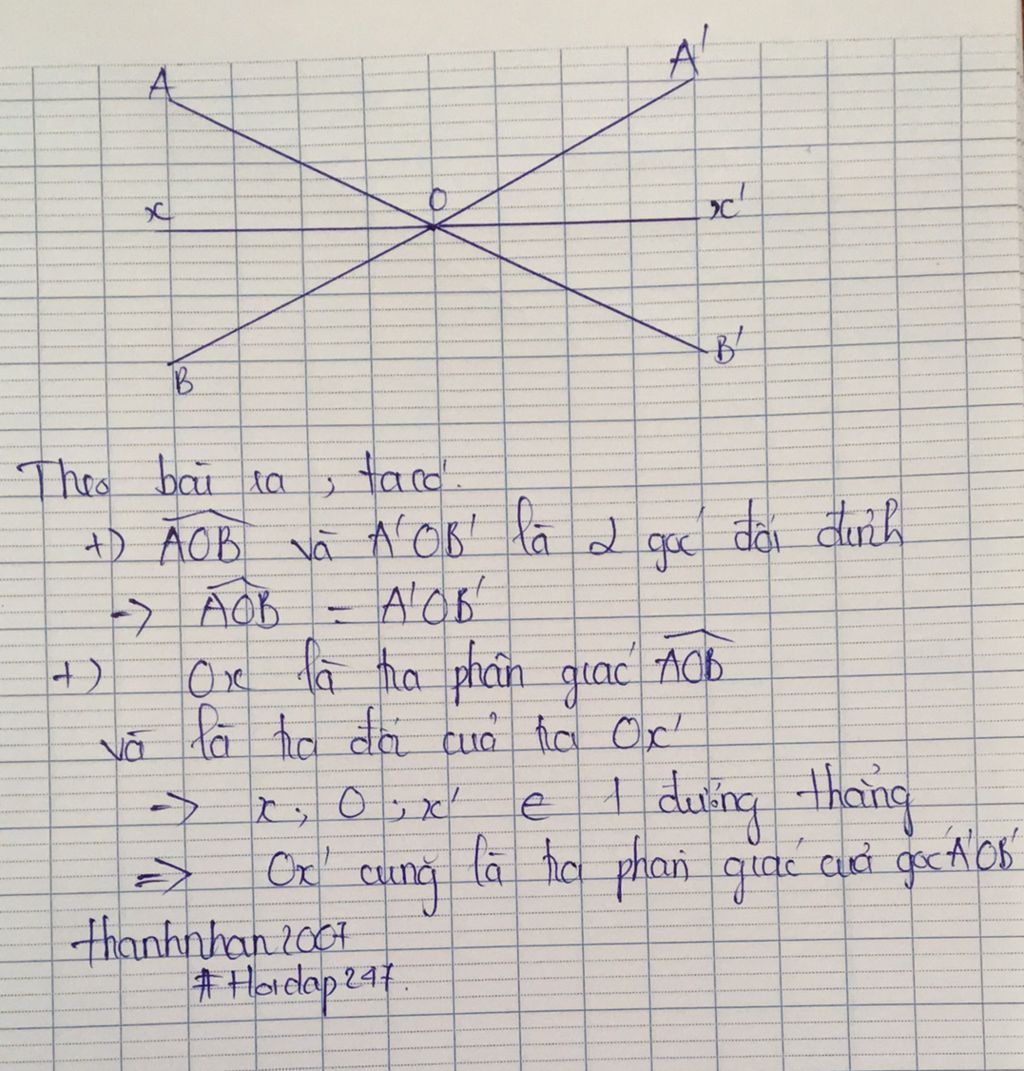 A
A'
O
x
x'
B
B'
Theo bài ra, ta có:
+) AOB và A'OB' là 2 góc đối đỉnh
-> AOB = A'OB'
+) Ox là tia phân giác AOB
và là tia đối của tia Ox'
-> x; O; x' e 1 đường thẳng
=> Ox' cũng là tia phân giác của góc A'OB'
thanhnhan2007
#Hoidap247.